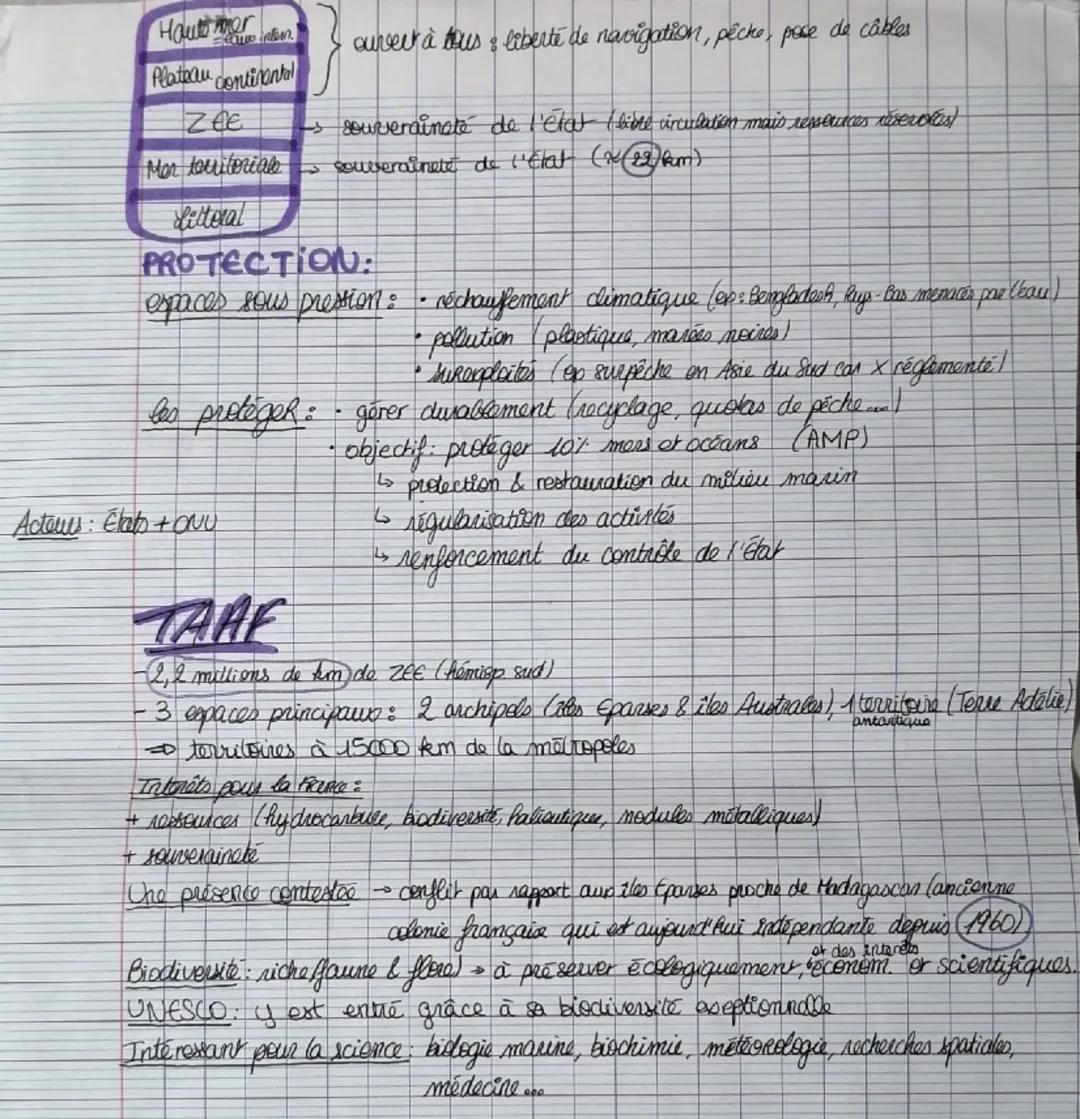 Haute mer
= eaux intern.
ouvert à tous : liberté de navigation, pêche, pose de câbles
Plateau continental
ZEE → souveraineté de l'État (libre circulation mais ressources réservées)
Mer territoriale → souveraineté de l'État (≈ 22 km)
Littoral
PROTECTION:
espaces sous pression : • réchauffement climatique (ex : Bengladesh, Pays-Bas menacés par l'eau)
• pollution (plastique, marées noires)
• surexploités (ex surpêche en Asie du Sud car X réglementé)
les protéger : • gérer durablement (recyclage, quotas de pêche...)
• objectif : protéger 10% mers et océans (AMP)
↳ protection & restauration du milieu marin
Acteurs : États + ONU
↳ régularisation des activités
↳ renforcement du contrôle de l'État
TAAF
- 2,2 millions de km de ZEE (hémisp sud)
- 3 espaces principaux : 2 archipels (îles Eparses & îles Australes), 1 territoire (Terre Adélie)
antartique
⇒ territoires à 15000 km de la métropoles
Intérêts pour la France :
+ ressources (hydrocarbure, biodiversité, halieutique, nodules métalliques)
+ souveraineté
Une présence contestée → conflit par rapport aux îles Eparses proche de Madagascar (ancienne
colonie française qui est aujourd'hui indépendante depuis 1960)
et des intérêts
Biodiversité : riche (faune & flore) → à préserver écologiquement, économ. et scientifiques.
UNESCO : y est entré grâce à sa biodiversité exeptionnalle
Intéressant pour la science : biologie marine, biochimie, météorologie, recherches spatiales,
médecine...